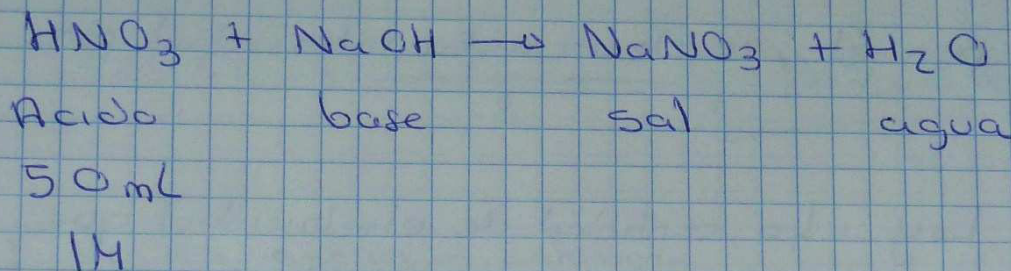 HNO3 + NaOH → NaNO3 + H2O
Acido base sal agua
50 mL
1M